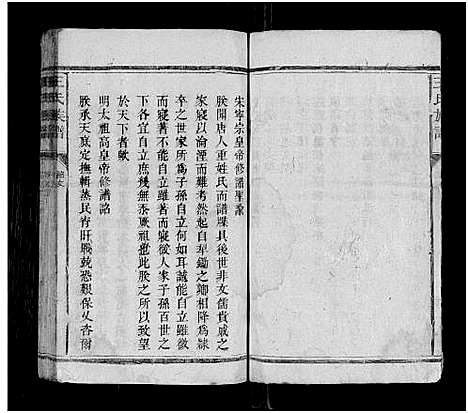 宋寧宗皇帝修譜聖諭
朕聞唐人重姓氏而譜牒具後世非女儒貴戚之
家寖以淪湮而難考然起自犁鋤之鄉相降為隸
卒之世家所為子孫自立何如耳誠能自立雖微
而寖著不能自立雖著而寖微人家子孫百世之
下各宜自立庶幾無忝厥祖此朕之所以致望
於天下者歟
明太祖高皇帝修譜諭
朕承天寔定撫輯蒸民宵旰殷兢恐艱保乂咨爾
王氏族譜